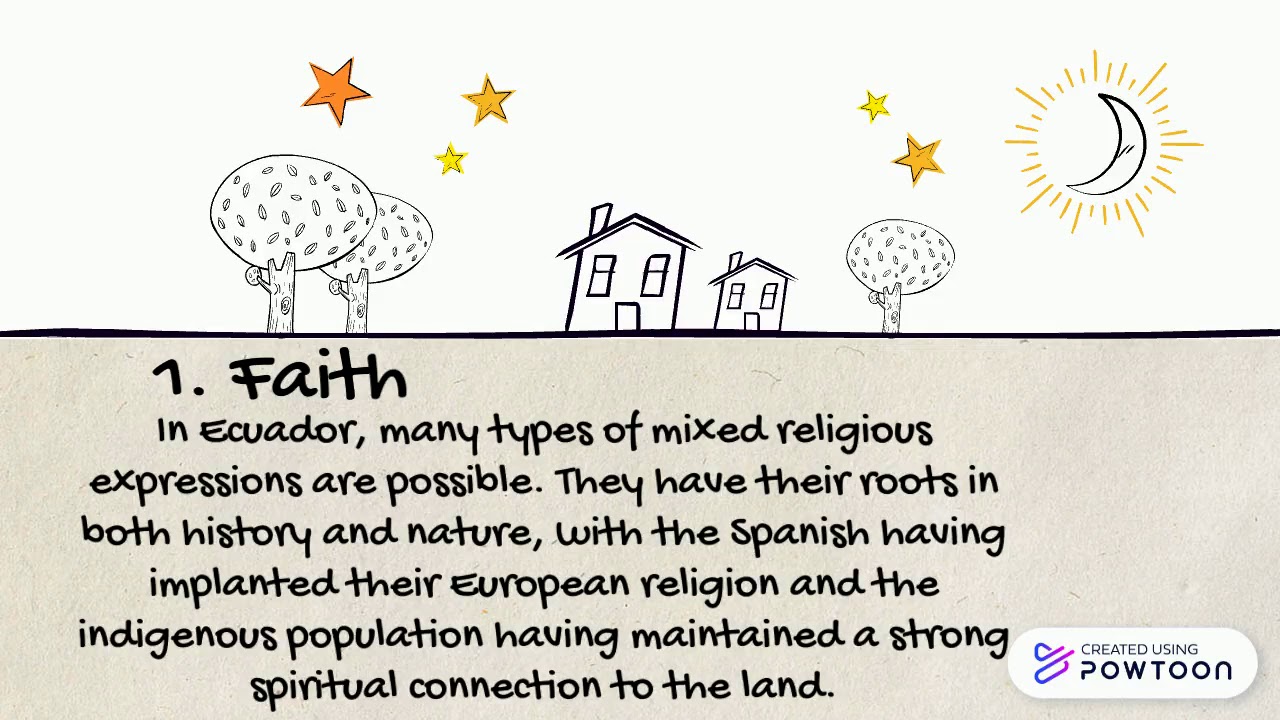 1. Faith
In Ecuador, many types of mixed religious
expressions are possible. They have their roots in
both history and nature, with the Spanish having
implanted their European religion and the
indigenous population having maintained a strong
spiritual connection to the land.
CREATED USING
POWTOON